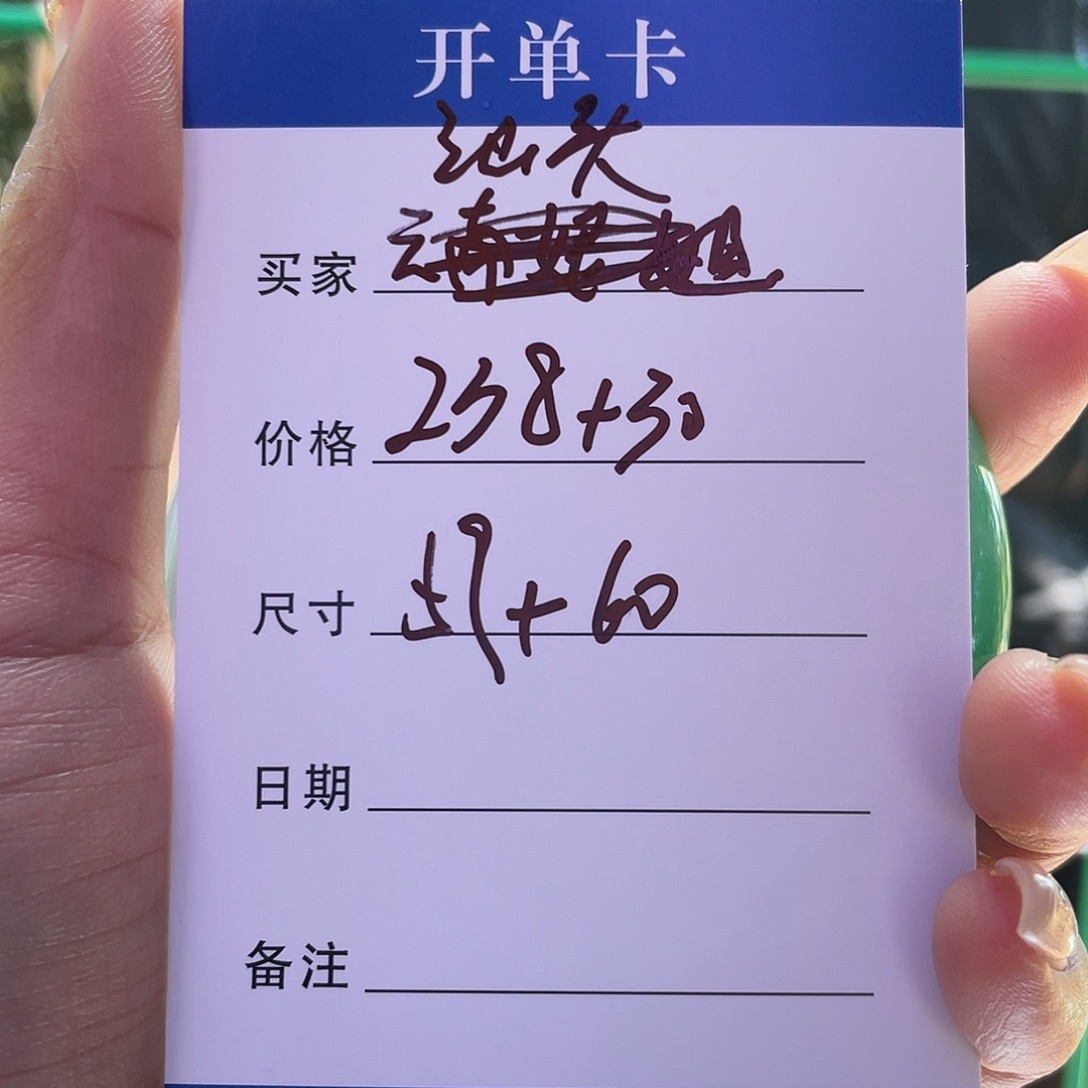 开单卡
汕头
买家
价格 238+30
尺寸 59+60
日期
备注